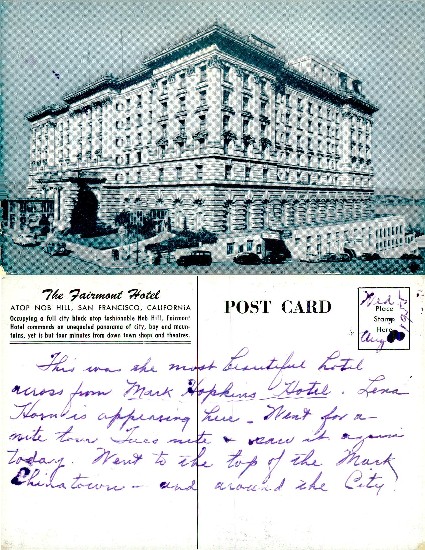 The Fairmont Hotel
ATOP NOB HILL, SAN FRANCISCO, CALIFORNIA
Occupying a full city block atop fashionable Nob Hill, Fairmont
Hotel commands an unequaled panorama of city, bay and moun-
tains, yet is but four minutes from down town shops and theatres.
POST CARD
Place
Stamp
Here
Wed
Aug
This was the most beautiful hotel
across from Mark Hopkins Hotel. Lena
Horn is appearing here - Went for a
nite tour Tues nite & saw it again
today. Went to the top of the Mark
Chinatown - and around the City.